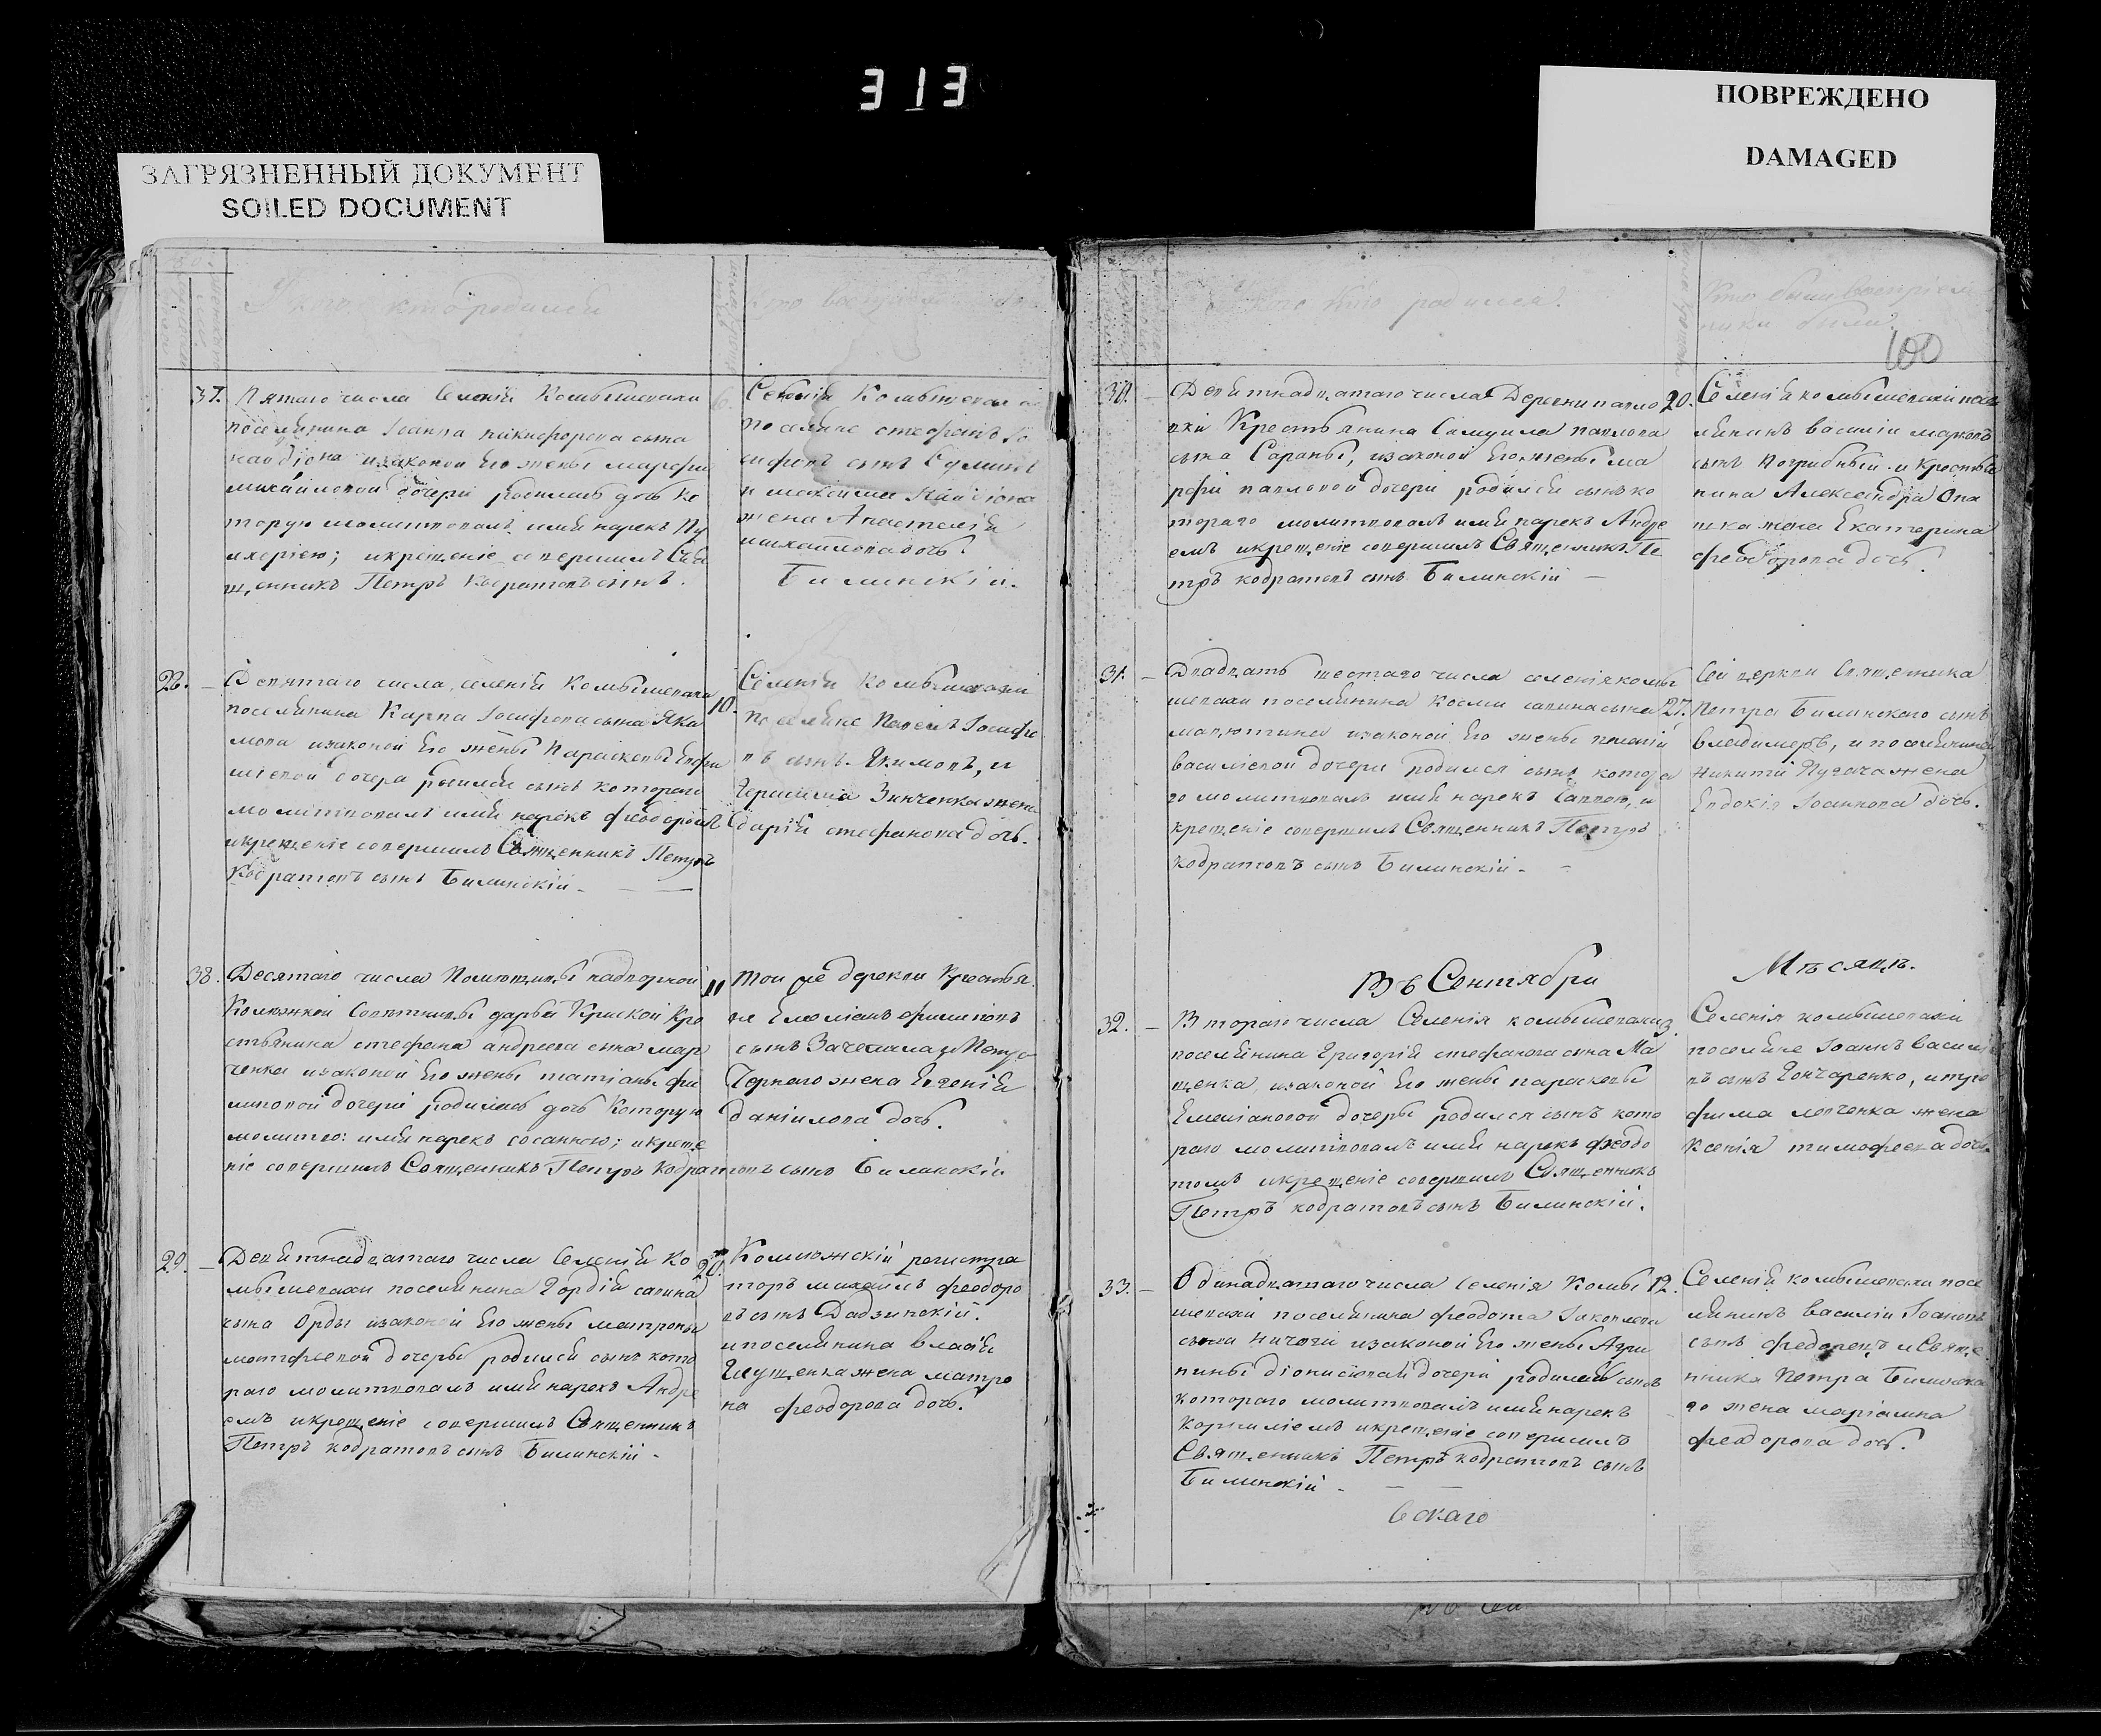 313
ПОВРЕЖДЕНО
DAMAGED
ЗАГРЯЗНЕННЫЙ ДОКУМЕНТ
SOILED DOCUMENT
кто родился
37. Пятаго числа Селенія Комышевахи
поселянина Іоанна никифорова сына
изаконой Его жены марфы
михайловой дочери родилась дочь ко
торую молитвовалъ имя нарекъ Пу
лхеріею; икрещеніе совершилъ Свя
щенникъ Петръ Кодратовъ сынъ
6. Селенія Комышевахи
поселяне стефанъ Іо
сифовъ сынъ
и максима
жена Анастасія
михайлова дочь.
Билинскій.
28. — Девятаго числа, селенія Комышевахи
поселянина Карпа Іосифова сына Яки
мова изаконой Его жены Параскевы Ефи
міевой дочери родился сынъ котораго
молитвовалъ имя нарекъ феодоромъ
икрещеніе совершилъ Священникъ Петръ
Кодратовъ сынъ Билинскій —
10. Селенія Комышевахи
поселяне Павелъ Іосифо
въ сынъ Якимовъ, и
Герасима Зинченка жена
дарія стефанова дочь.
38. Десятаго числа Помѣщицы надворной
Совѣтницы дарьи Крес
стьянина стефана андреева сына мар
ченка изаконой Его жены татіаны фи
липовой дочери родилась дочь Которую
молитво: имя нарекъ сосанною; икреще
ніе совершилъ Священникъ Петръ Кодратовъ сынъ Билинскій
11 Той же деревни Крестья
не Емеліанъ филиповъ
сынъ и Петра
Чернаго жена Евгенія
даніилова дочь.
29. — Девятнадцатаго числа Селенія Ко
мышевахи поселянина Гордія савина
сына Орды изаконой Его жены матроны
матфѣевой дочери родился сынъ кото
раго молитвовалъ имя нарекъ Андре
емъ икрещеніе совершилъ Священникъ
Петръ кодратовъ сынъ Билинскій —
20. Колежскій регистра
торъ михаилъ феодоро
въ сынъ Дадзинскій.
ипоселянина власія
Глущенка жена матро
на феодорова дочь.
кто родился
Кто были воспріем
ники были
100
30. — Девятнадцатаго числа Деревни павло
вки Крестьянина Самуила павлова
сына Сараны, изаконой Его жены ма
рфы павловой дочери родился сынъ ко
тораго молитвовалъ имя нарекъ Андре
емъ икрещеніе совершилъ Священникъ Пе
тръ кодратовъ сынъ Билинскій —
20. Селенія комышевахи посе
лянинъ василій марковъ
сынъ Погрибный и Крестья
нина Александра
жена Екатерина
феодорова дочь.
31. — Двадцать шестаго числа селенія комы
шевахи поселянина космы савина сына
изаконой Его жены
василіевой дочери родился сынъ котора
го молитвовалъ имя нарекъ Саввою, и
крещеніе совершилъ Священникъ Петръ
кодратовъ сынъ Билинскій —
27. Сей церкви Священника
Петра Билинскаго сынъ
владимеръ, и поселянина
никиты Пугача жена
Евдокія Іоаннова дочь.
Въ Сентябри Мѣсяцѣ.
32. — Втораго числа Селенія комышевахи
поселянина Григорія стефанова сына Ма
щенка, изаконой Его жены параскевы
Емеліановой дочеры родился сынъ кото
раго молитвовалъ имя нарекъ феодо
томъ икрещеніе совершилъ Священникъ
Петръ кодратовъ сынъ Билинскій.
3. Селенія комышевахи
поселяне Іоаннъ василіе
въ сынъ Гончаренко, итро
фима левченка жена
Ксенія тимофеева дочь
33. — Одинадцатаго числа селенія Комы
шевахи поселянина феодота Іаковлева
сына Ничоги изаконой Его жены Агри
пины діонисіевой дочери родился сынъ
котораго молитвовалъ имя нарекъ
Корниліемъ икрещеніе совершилъ
Священникъ Петръ кодратовъ сынъ
Билинскій —
12. Селенія комышевахи посе
лянинъ василій Іоановъ
сынъ федорецъ и Свяще
нника Петра Билинска
го жена маріамна
феодорова дочь.
вскаго